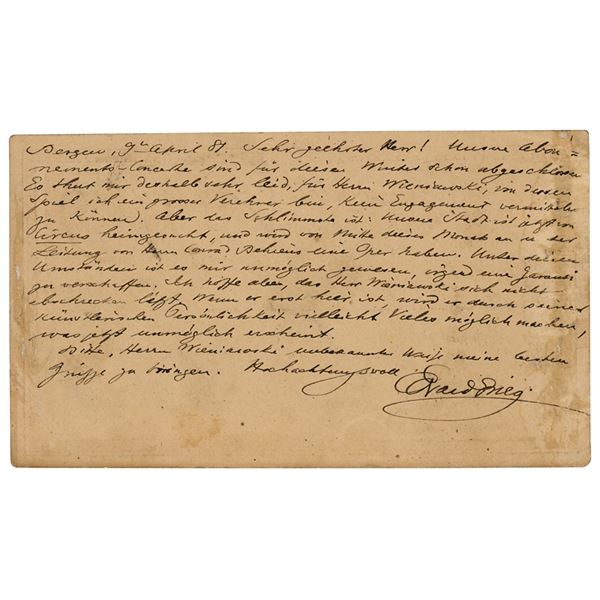 Bergen, 9t April 81. Sehr geehrter Herr! Unsere Abon=
nements-Concerte sind für diesen Winter schon abgeschlossen.
Es thut mir deshalb sehr leid, für Herrn Wieniawski, von dessen
Spiel ich ein grosser Verehrer bin, kein Engagement vermitteln
zu können. Aber das Schlimmste ist: Unsere Stadt ist jetzt von
Circus heimgesucht, und wird von Mitte dieses Monats an u. der
Leitung von Herrn Conrad Behrens eine Oper haben. Unter diesen
Umständen ist es mir unmöglich gewesen, irgend eine Garantie
zu verschaffen. Ich hoffe aber, das Herr Wieniawski sich nicht
abschrecken läßt. Wenn er erst hier ist, wird er durch seine
künstlerischen Persönlichkeit vielleicht Vieles möglich machen,
was jetzt unmöglich erscheint.
Bitte, Herrn Wieniawski unbekannter Weise meine besten
Grüße zu bringen. Hochachtungsvoll
Edvard Grieg